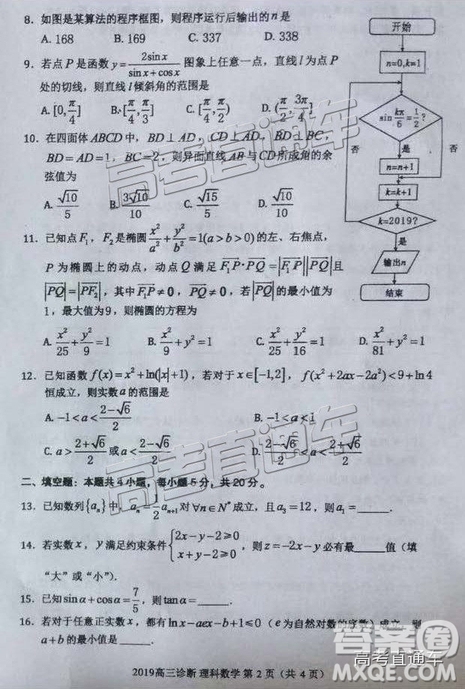 8. 如图是某算法的程序框图，则程序运行后输出的n是
A. 168 B. 169 C. 337 D. 338
9. 若点P是函数y=2sinx/(sinx+cosx)图象上任意一点，直线l为点P
处的切线，则直线l倾斜角的范围是
A.[0,π/4] B.[π/4,π/3] C.[π/4,π/2) D.(π/2,3π/4]
10. 在四面体ABCD中，BD⊥AD，CD⊥AD，BD⊥BC，
BD=AD=1，BC=2，则异面直线AB与CD所成角的余
弦值为
A. √10/5 B. 3√10/10 C. √15/5 D. √10/10
11. 已知点F₁，F₂是椭圆x²/a²+y²/b²=1(a>b>0)的左、右焦点，
P为椭圆上的动点，动点Q满足F₁P·PQ=|F₁P||PQ|且
|PQ|=|PF₂|，其中F₁P≠0，PQ≠0，若|PQ|的最小值为
1，最大值为9，则椭圆的方程为
A. x²/25+y²/9=1 B. x²/9+y²=1 C. x²/25+y²/16=1 D. x²/81+y²=1
12. 已知函数f(x)=x²+ln(|x|+1)，若对于x∈[-1,2]，f(x²+2ax-2a²)<9+ln4
恒成立，则实数a的范围是
A. -1<a<(2-√6)/2 B. -1<a<1
C. a>(2+√6)/2或a<(2-√6)/2 D. (2-√6)/2<a<(2+√6)/2
二、填空题：本题共4小题，每小题5分，共20分。
13. 已知数列{aₙ}中，aₙ=1/2aₙ₊₁对∀n∈N*成立，且a₃=12，则a₁=____.
14. 若实数x，y满足约束条件{2x-y-2≥0 x+y-2≥0，则z=-2x-y必有最____值（填
“大”或“小”）.
15. 已知sinα+cosα=7/5，则tanα=____.
16. 若对于任意正实数x，都有lnx-aeˣ-b+1≤0（e为自然对数的底数）成立，则
a+b的最小值是____.
2019高三诊断 理科数学 第2页（共4页）
开始
n=0,k=1
sin kπ/6=1/2?
否
是
否
n=n+1
k=k+1
k=2019?
是
输出n
结束
高考直通车
高考直通车
答案圈
高考直通车